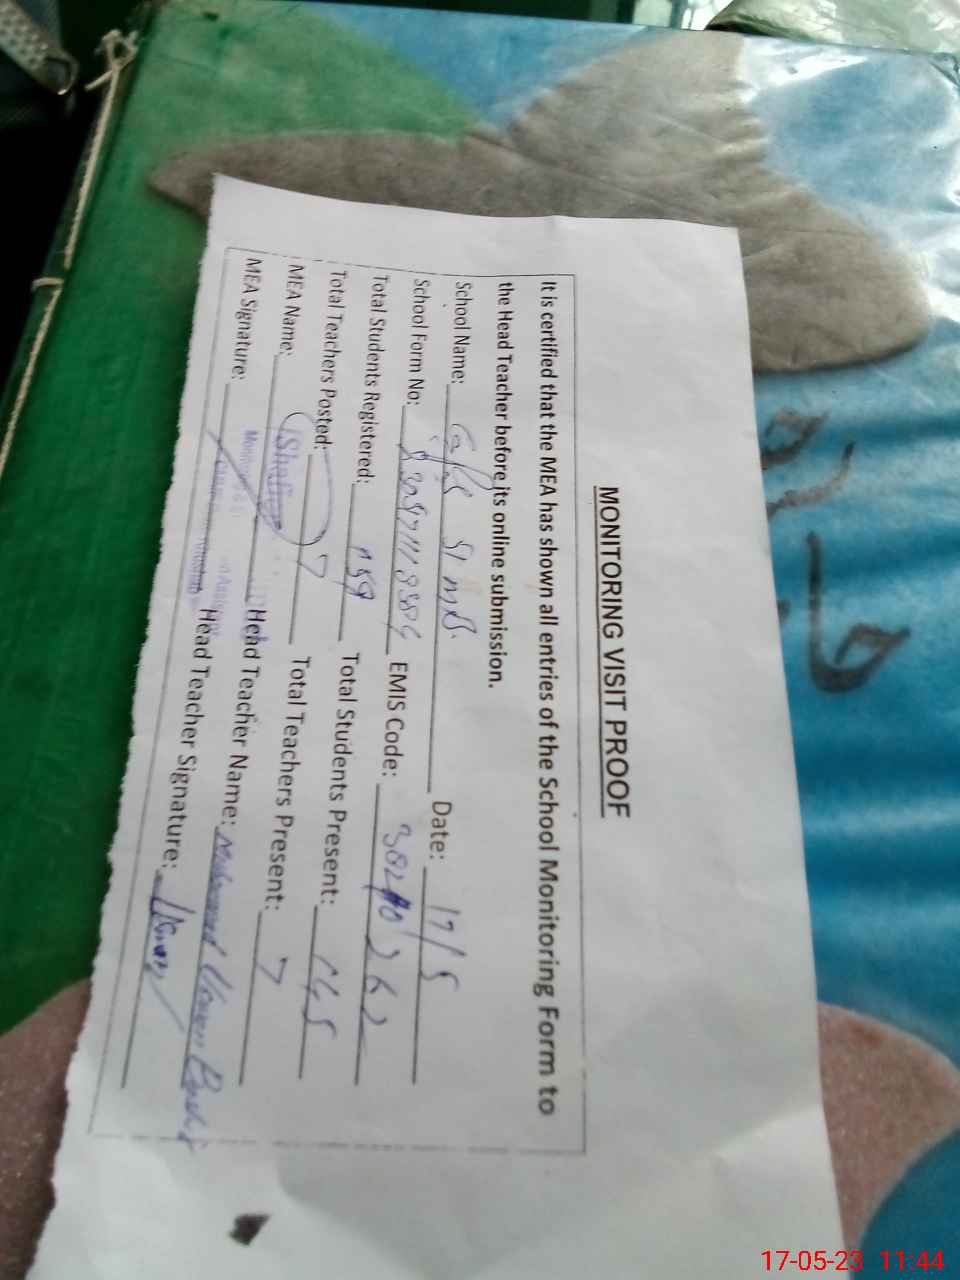 MONITORING VISIT PROOF
It is certified that the MEA has shown all entries of the School Monitoring Form to
the Head Teacher before its online submission.
School Name: 51 MB Date: 17/5
School Form No: EMIS Code:
Total Students Registered: 159 Total Students Present: 145
Total Teachers Posted: 7 Total Teachers Present: 7
MEA Name: Head Teacher Name: Muhammad Usman
MEA Signature: Head Teacher Signature: Usman
17-05-23 11:44